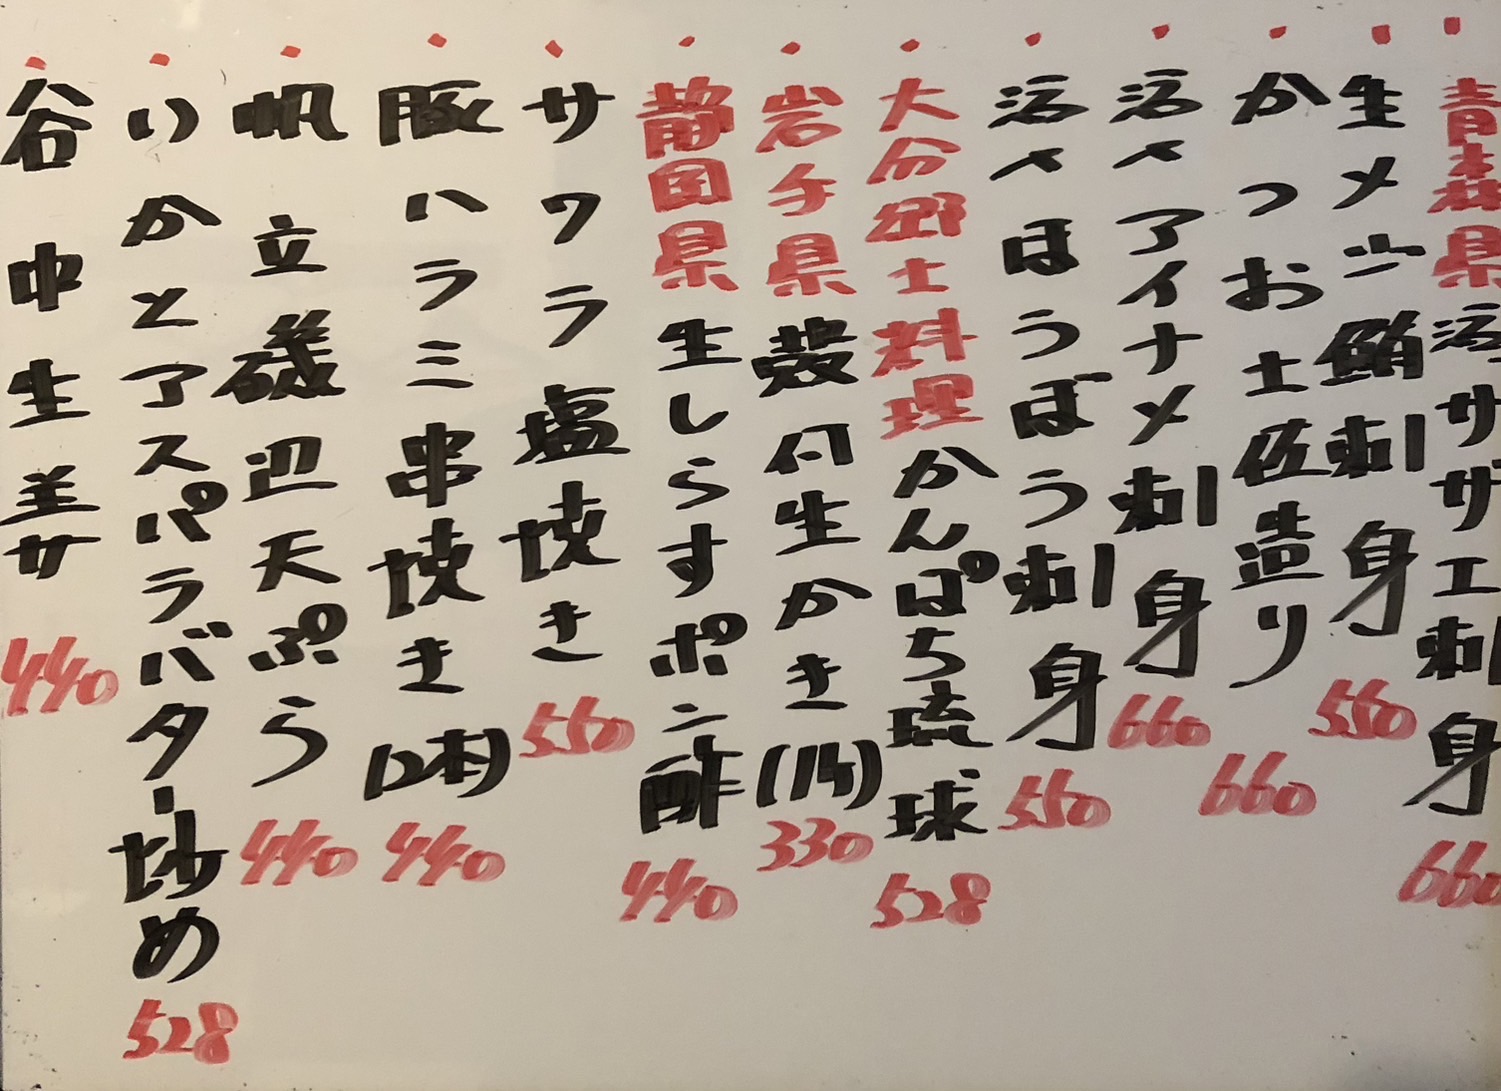 青森県活サザエ刺身 660
生メジ鮪刺身 550
かつお土佐造り 660
活〆アイナメ刺身 660
活〆ほうぼう刺身 550
大分郷土料理かんぱち琉球 528
岩手県殻付生かき(1個) 330
静岡県生しらすポン酢 440
サワラ塩焼き 550
豚ハラミ串焼き(2本) 440
帆立磯辺天ぷら 440
いかとアスパラバター炒め 528
谷中生姜 440